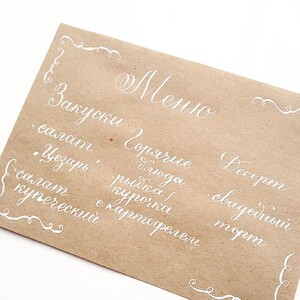 Меню
Закуски
·салат
"Цезарь"
·салат
купеческий
Горячие
блюда
рыбка
курочка
с картофелем
Десерт
свадебный
торт